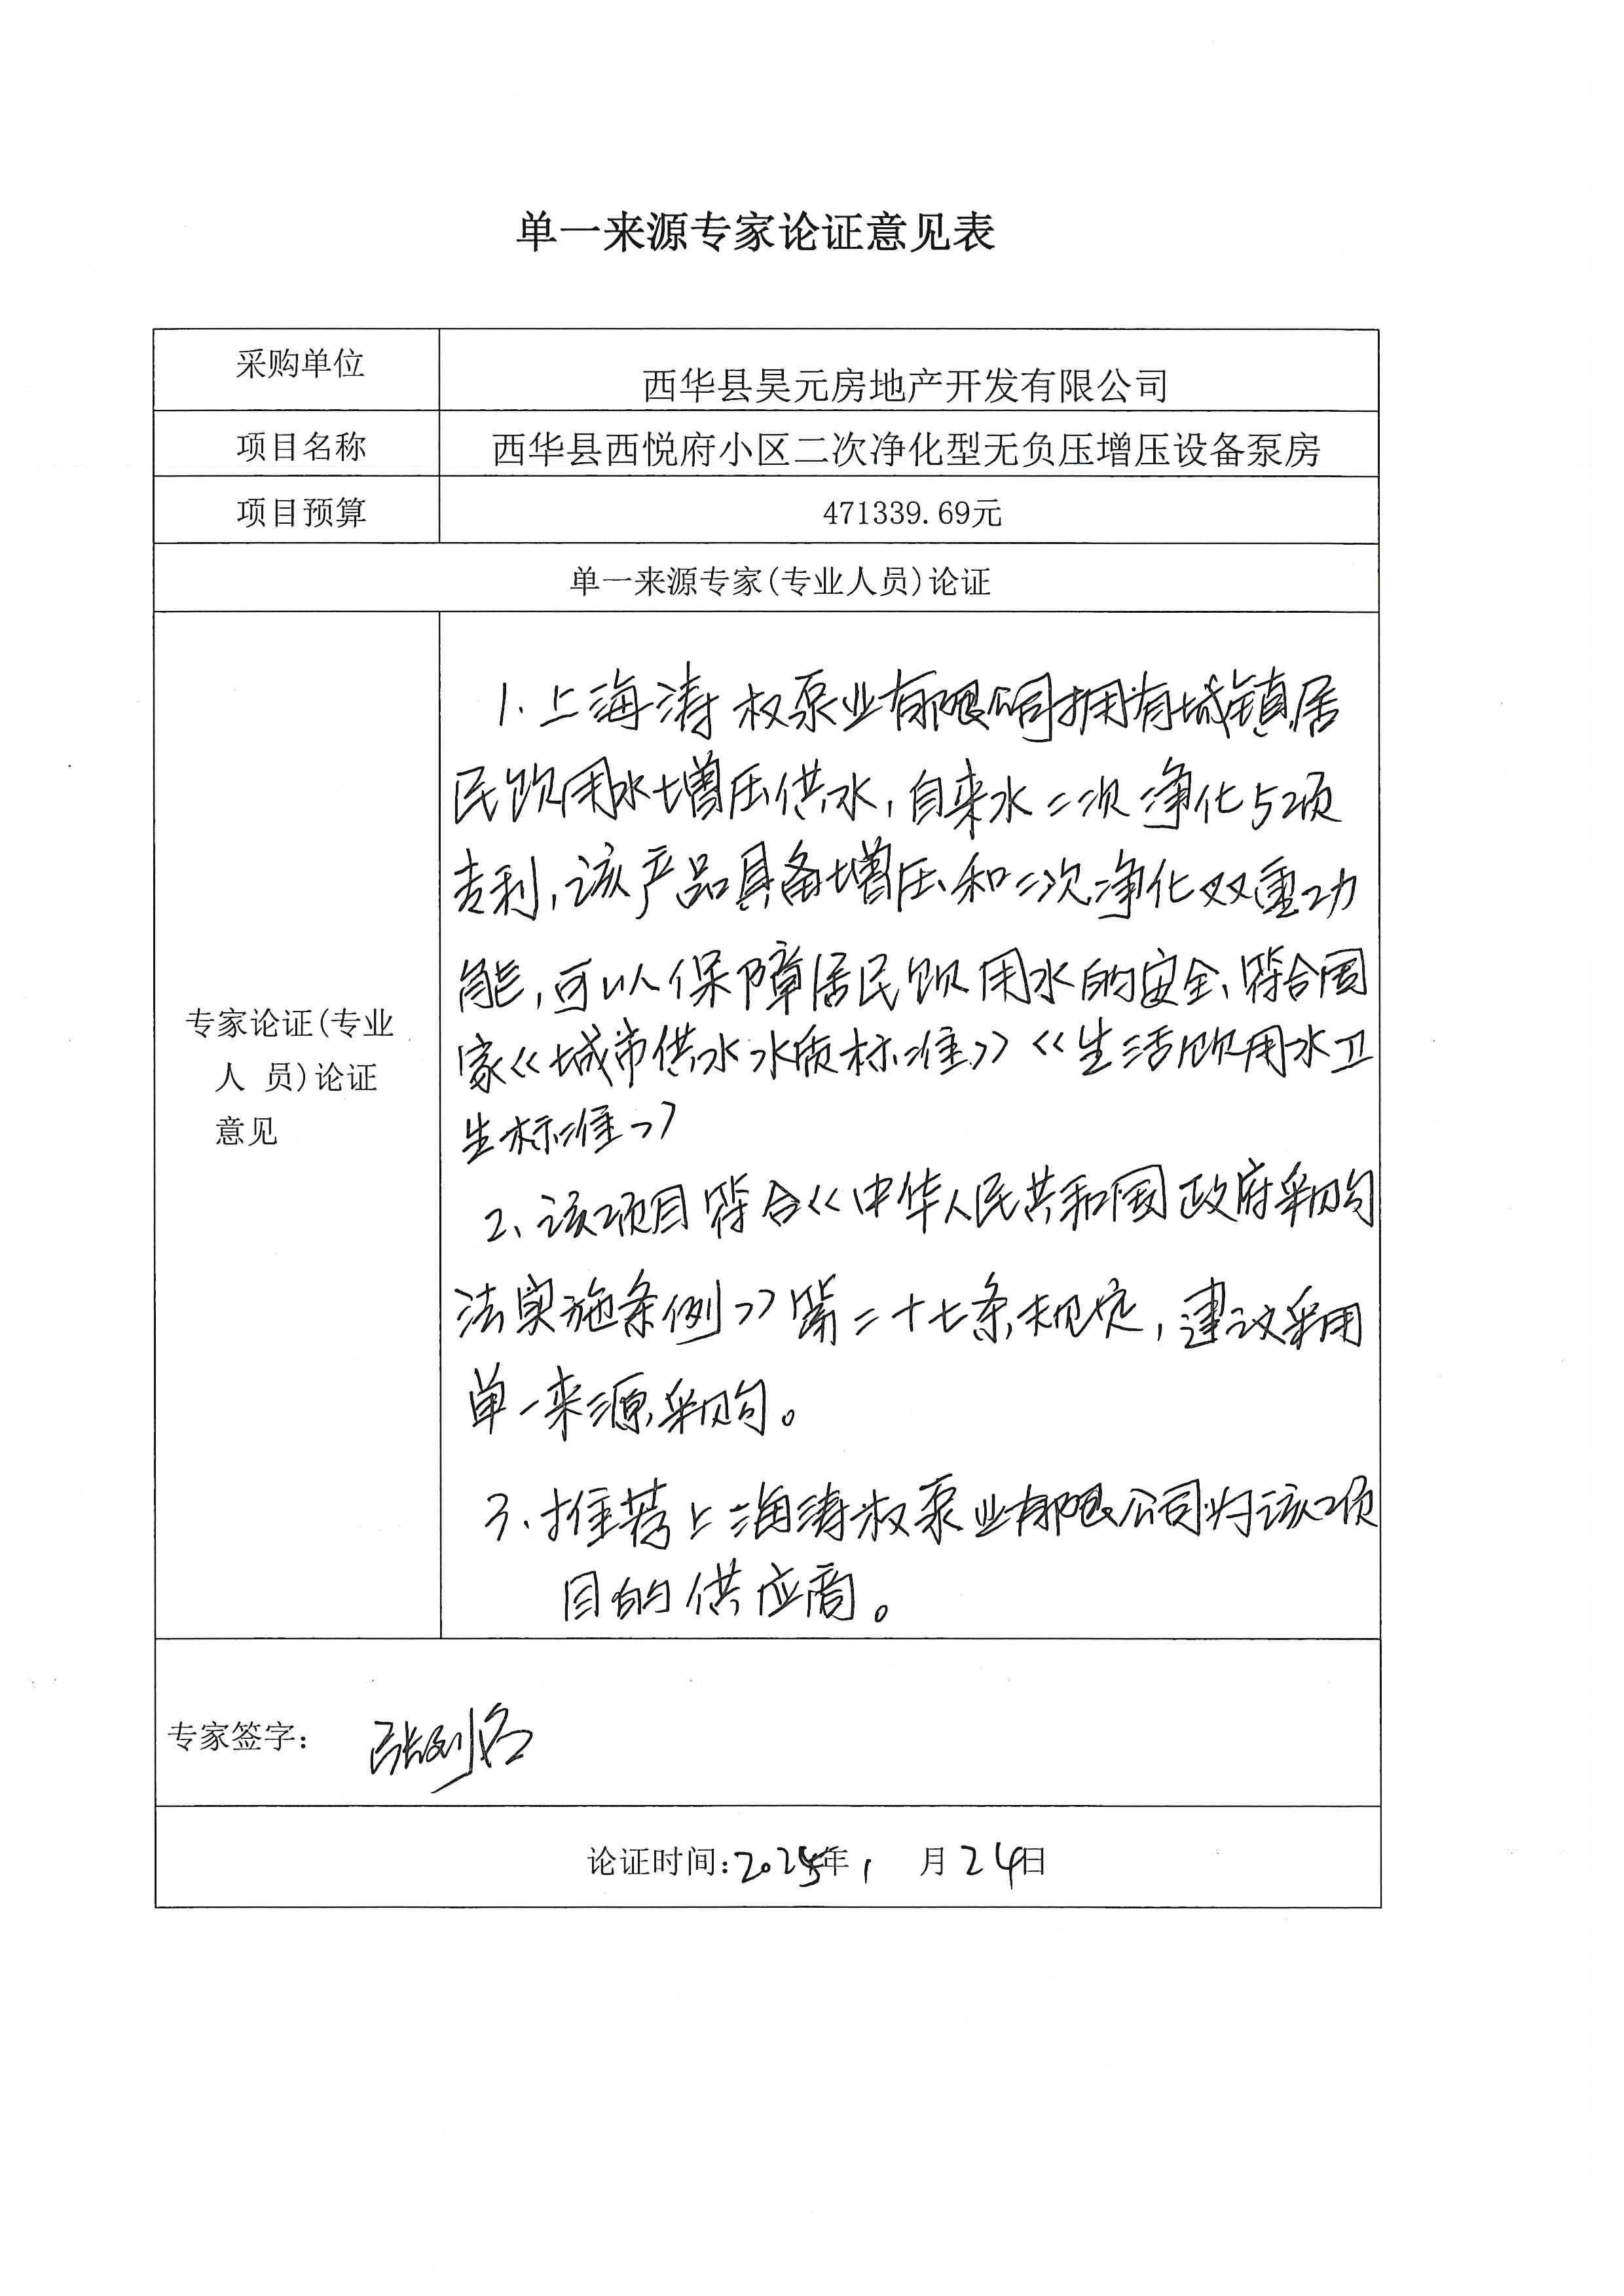 单一来源专家论证意见表
采购单位
西华县昊元房地产开发有限公司
项目名称
西华县西悦府小区二次净化型无负压增压设备泵房
项目预算
471339.69元
单一来源专家(专业人员)论证
专家论证(专业
人 员)论证
意见
1.上海涛权泵业有限公司拥有城镇居
民饮用水增压供水,自来水二次净化5项
专利,该产品具备增压和二次净化双重功
能,可以保障居民饮用水的安全、符合国
家《城市供水水质标准》《生活饮用水卫
生标准》
2、该项目符合《中华人民共和国政府采购
法实施条例》第二十七条规定,建议采用
单一来源采购。
3、推荐上海涛权泵业有限公司为该项
目的供应商。
专家签字:
论证时间:2025年1 月24日